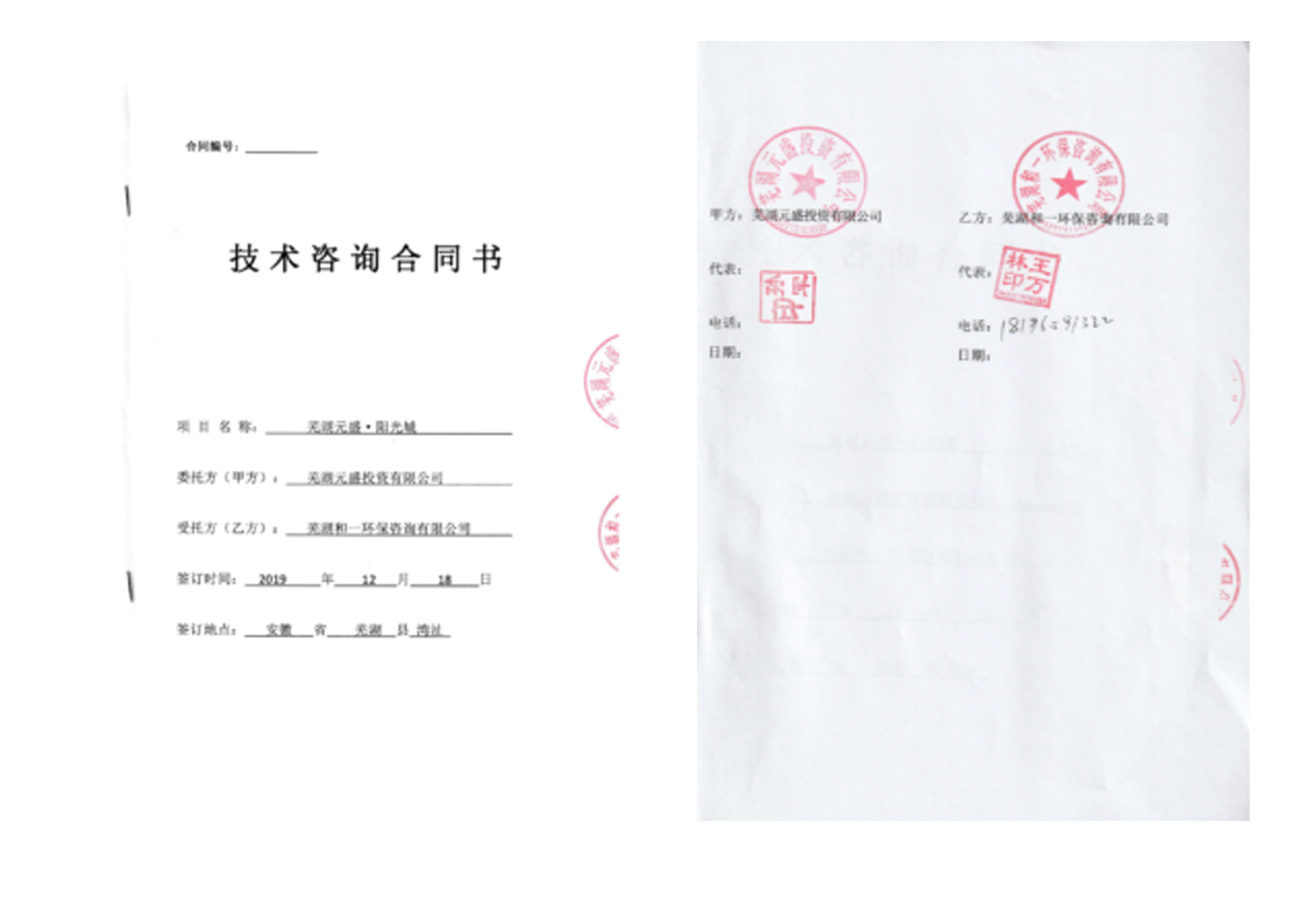 合同编号：
技术咨询合同书
项目名称：芜湖元盛·阳光城
委托方（甲方）：芜湖元盛投资有限公司
受托方（乙方）：芜湖和一环保咨询有限公司
签订时间：2019年12月18日
签订地点：安徽省芜湖县湾沚
芜湖元盛
芜湖元盛投资有限公司
甲方：芜湖元盛投资有限公司
代表：
电话：
日期：
芜湖和一环保咨询有限公司
乙方：芜湖和一环保咨询有限公司
代表：
王万林印
电话：
日期：